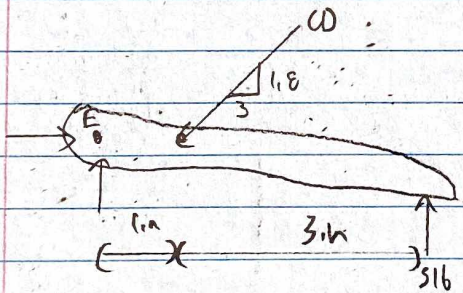 CD
1.8
3
E
C
1in
3in
5lb